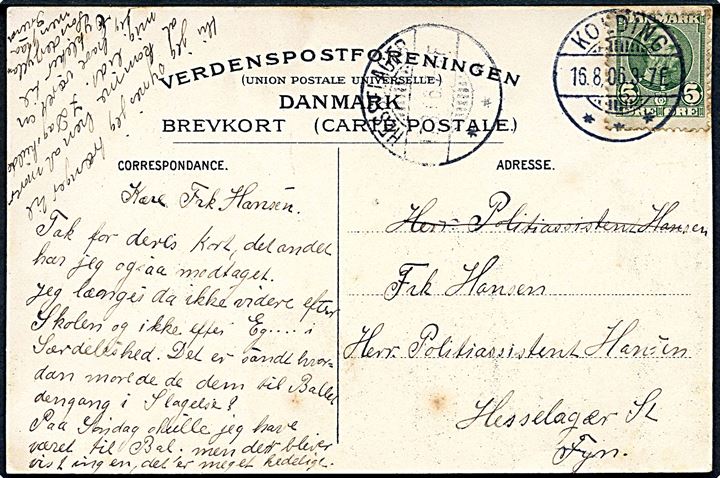 VERDENSPOSTFORENINGEN
(UNION POSTALE UNIVERSELLE)
DANMARK
BREVKORT (CARTE POSTALE.)
KOLDING
16.8.06.3-7E
DANMARK
5 5
ØRE ØRE
HESSELAGER
CORRESPONDANCE.
Kære Frk Hansen.
Tak for deres Kort, det andet
har jeg ogsaa modtaget.
Jeg længes da ikke videre efter
Skolen og ikke efter Eg..... i
Særdeleshed. Det er sandt hvor-
dan morede de dem til Ballet
dengang i Slagelse?
Paa Søndag skulle jeg have
været til Bal. men der bliver
vist ingen, det er meget kedeligt.
ADRESSE.
Herr Politiassistent Hansen
Frk Hansen
Herr Politiassistent Hansen
Hesselager St
Fyn.